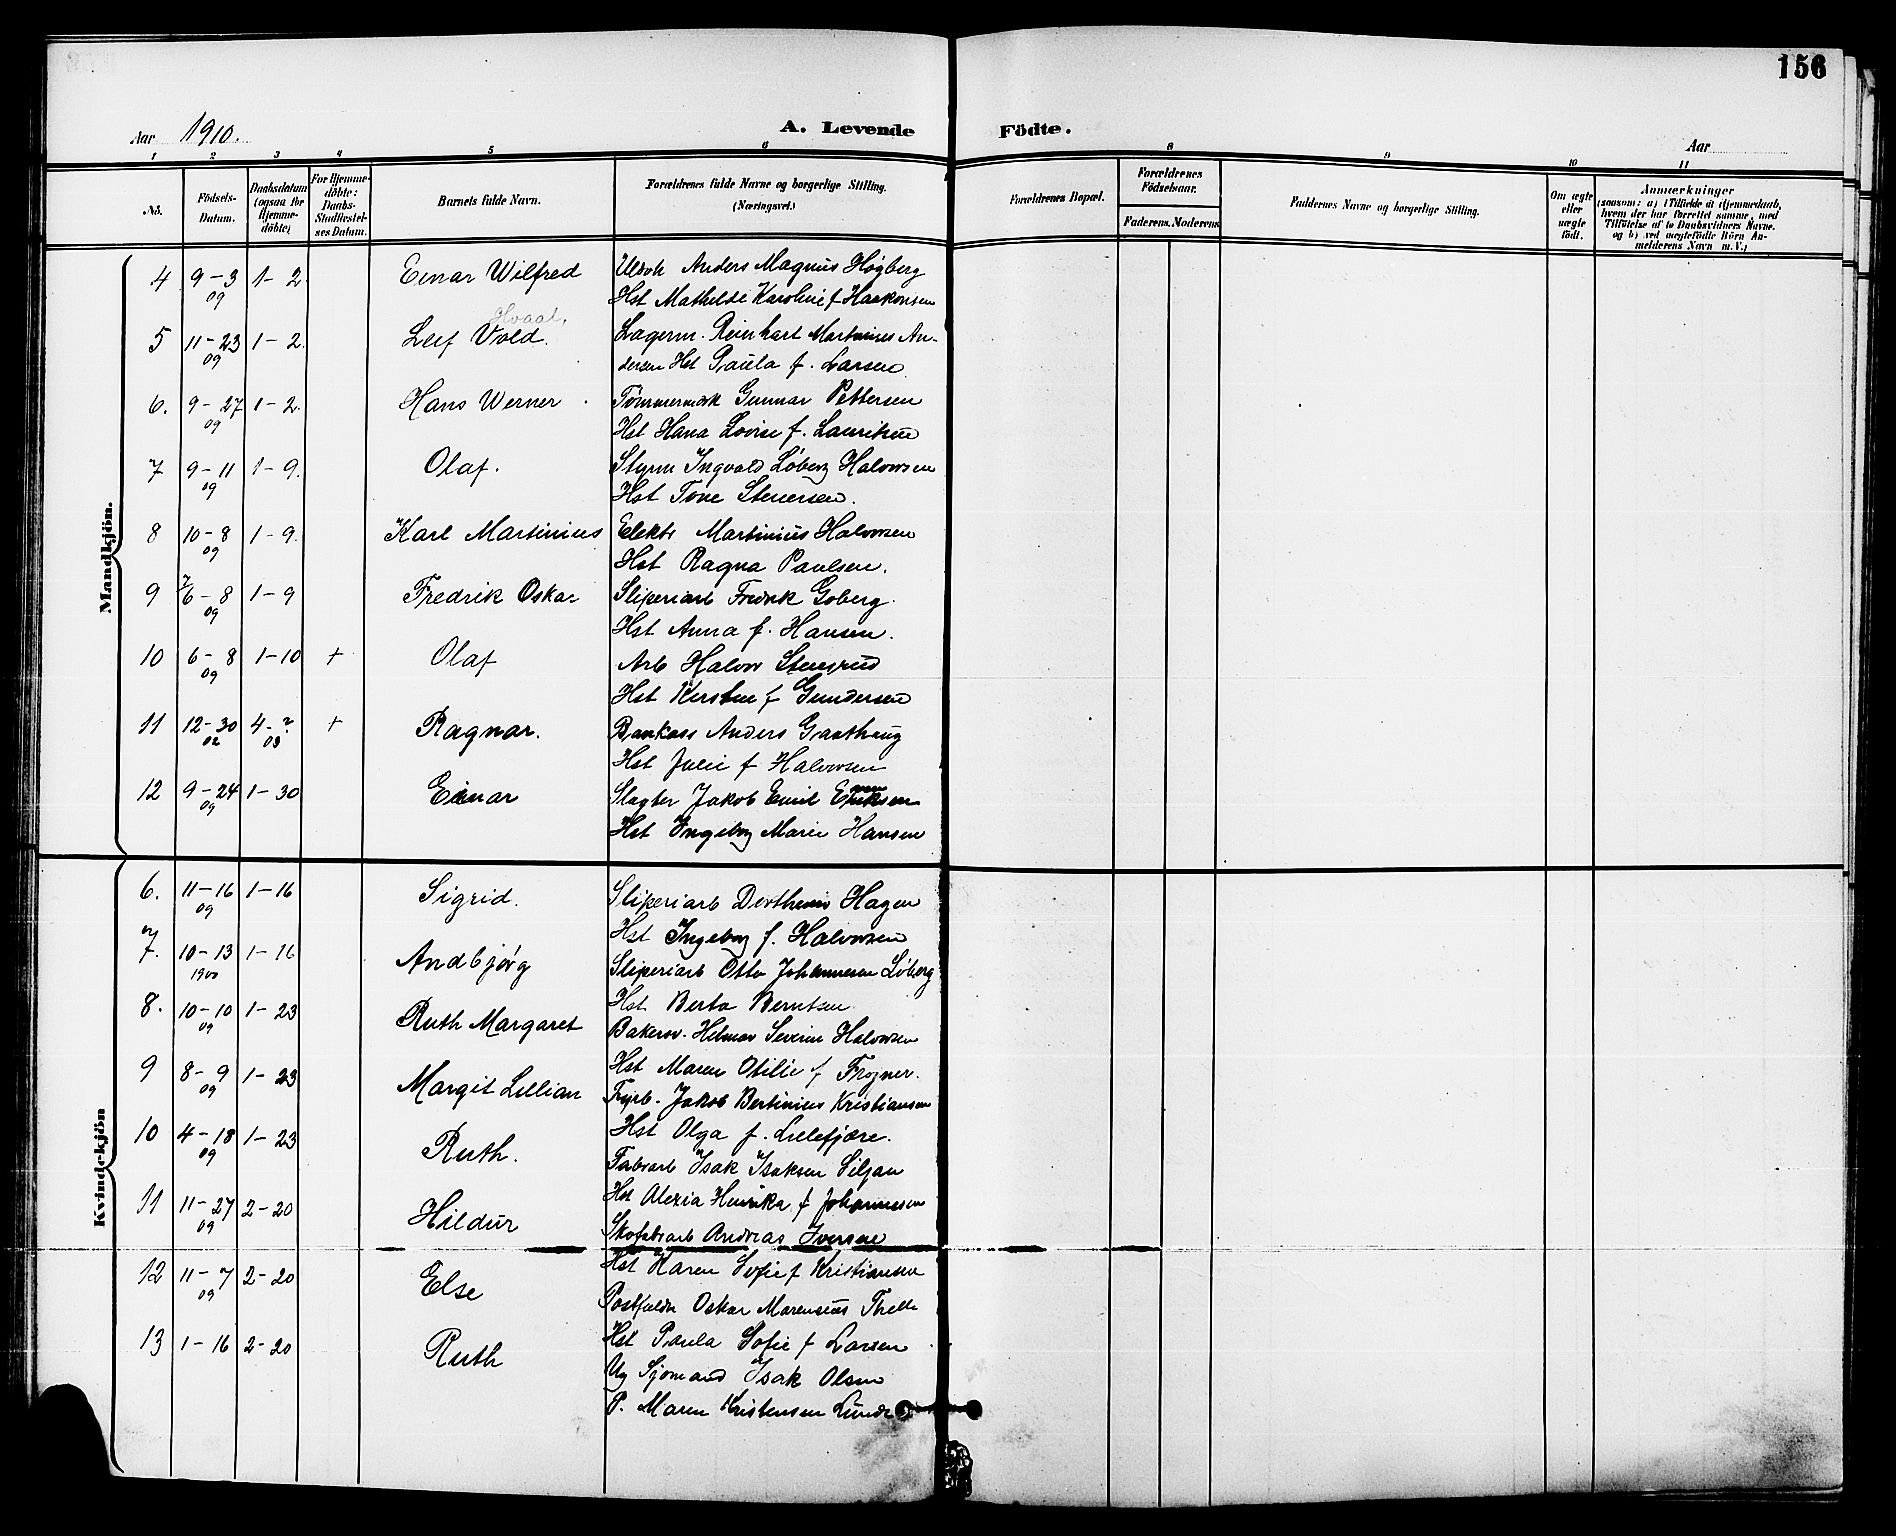 156
Aar 1910.
A. Levende Födte.
Aar
1 2 3 4 5 6 8 9 10 11
No. Födsels-Datum. Daabsdatum (ogsaa for Hjemme-döbte) For Hjemme-döbte: Daabs-Stadfæstel-ses Datum. Barnets fulde Navn. Forældrenes fulde Navne og borgerlige Stilling. (Næringsvei.) Forældrenes Bopæl. Forældrenes Födselsaar. Faderens. Moderens Faddernes Navne og borgerlige Stilling. Om ægte eller uægte födt. Anmærkninger (saasom: a) i Tilfælde af Hjemmedaab, hvem der har forrettet samme, med Tilföielse af to Daabsvidners Navne. og b) ved uægtefödte Börn An-melderens Navn m. V.)
Mandkjön.
4 9-3 09 1-2. Einar Wilfred Anders Magnus Høgberg
Hst Mathilde Karoline f Haakonsen
Hvaal,
5 11-23 09 1-2. Leif Vold. Lagerm. Reinhart Martinius An-
dersen Hst Paula f. Larsen
6. 9-27 09 1-2. Hans Werner Tømmermæsk Gunnar Pettersen
Hst Hana Lovise f. Lauritsen
7 9-11 09 1-9. Olaf. Styrm Ingvald Løberg Halvorsen
Hst Tone Stenersen.
8 10-8 09 1-9. Karl Martinius Elektr Martinius Halvorsen
Hst Ragna Paulsen.
9 7 6-8 09 1-9 Fredrik Oskar Sliperiarb Fredrik Goberg.
Hst Anna f. Hansen.
10 6-8 09 1-10 + Olaf Arb Halvor Stensrud
Hst Kirsten f Gundersen
11 12-30 02 4-? 03 + Ragnar. Bankass Anders Gaathaug
Hst Julie f Halvorsen
12 9-24 09 1-30 Einar Slagter Jakob Emil
Hst Ingeborg Marie Hansen
Kvindekjön
6. 11-16 09 1-16 Sigrid. Sliperiarb Dorthenius Hagen
Hst Ingeborg f. Halvorsen
7. 10-13 1900 1-16 Andbjørg Sliperiarb Otto Johannesen Løberg
Hst Berta Berntsen
8. 10-10 09 1-23 Ruth Margaret Bakersv. Helmar Severin Halvorsen
Hst Maren Otilie f Frogner.
9 8-9 09 1-23 Margit Lillian Fyrb. Jakob Bertinius Kristiansen
Hst Olga f. Lillefjære.
10 4-18 09 1-23 Ruth. Fabrarb Isak Isaksen Siljan
Hst Alexia Henrika f Johannesen
11 11-27 09 2-20 Hildur Skofabrarb Andreas Iversen
Hst Karen Sofie f Kristiansen
12 11-7 09 2-20 Else Postfuldm Oskar Marensius Thelle
Hst Paula Sofie f Larsen
13 1-16 2-20 Ruth Ug Sjømand Isak Olsen
P. Maren Kristensen Lunde